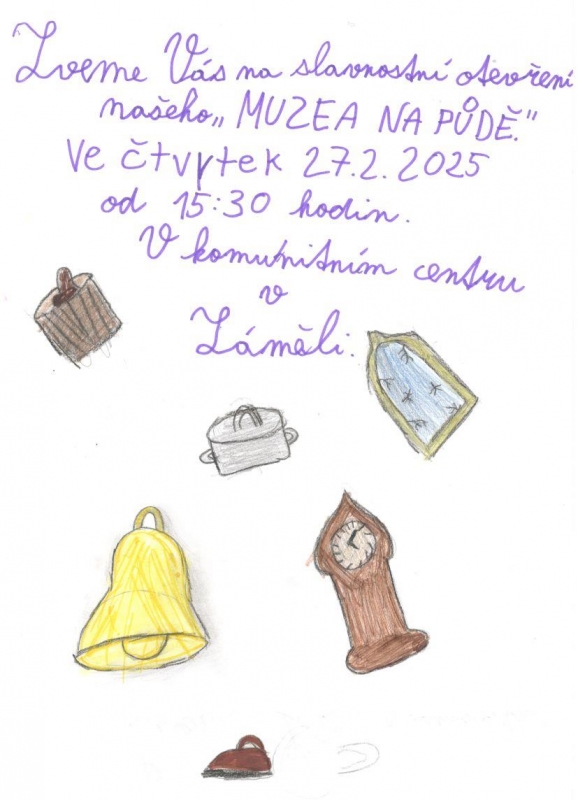 Zveme Vás na slavnostní otevření
našeho „MUZEA NA PŮDĚ."
Ve čtvrtek 27.2.2025
od 15:30 hodin.
V komunitním centru
v
Záměli.